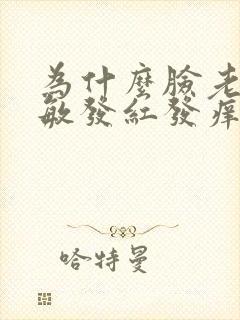 為什麼臉老
敏發紅發痒
哈特曼